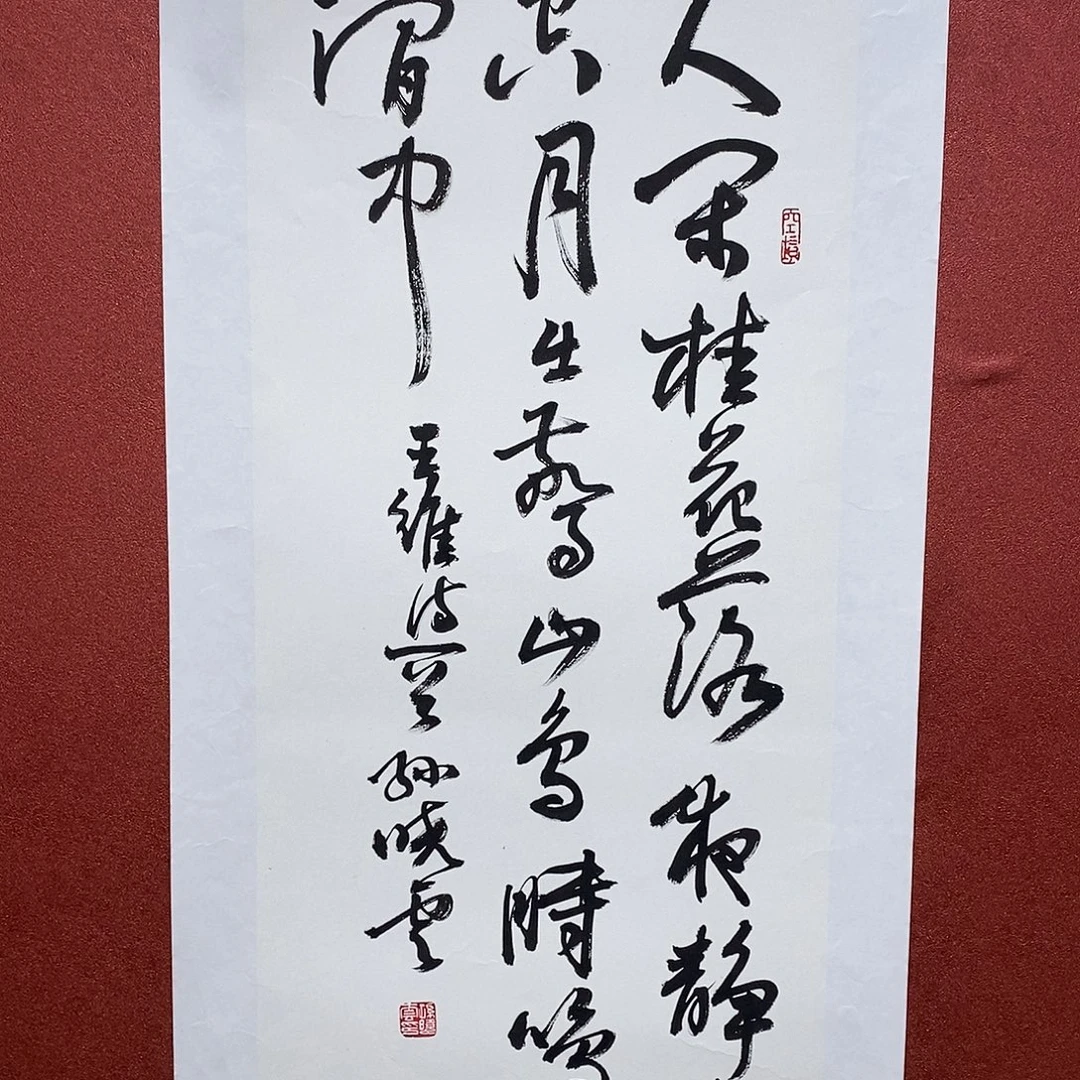 人闲桂花落夜静
空月出驚山鳥時鳴
澗中
王維詩一首 孫曉雲